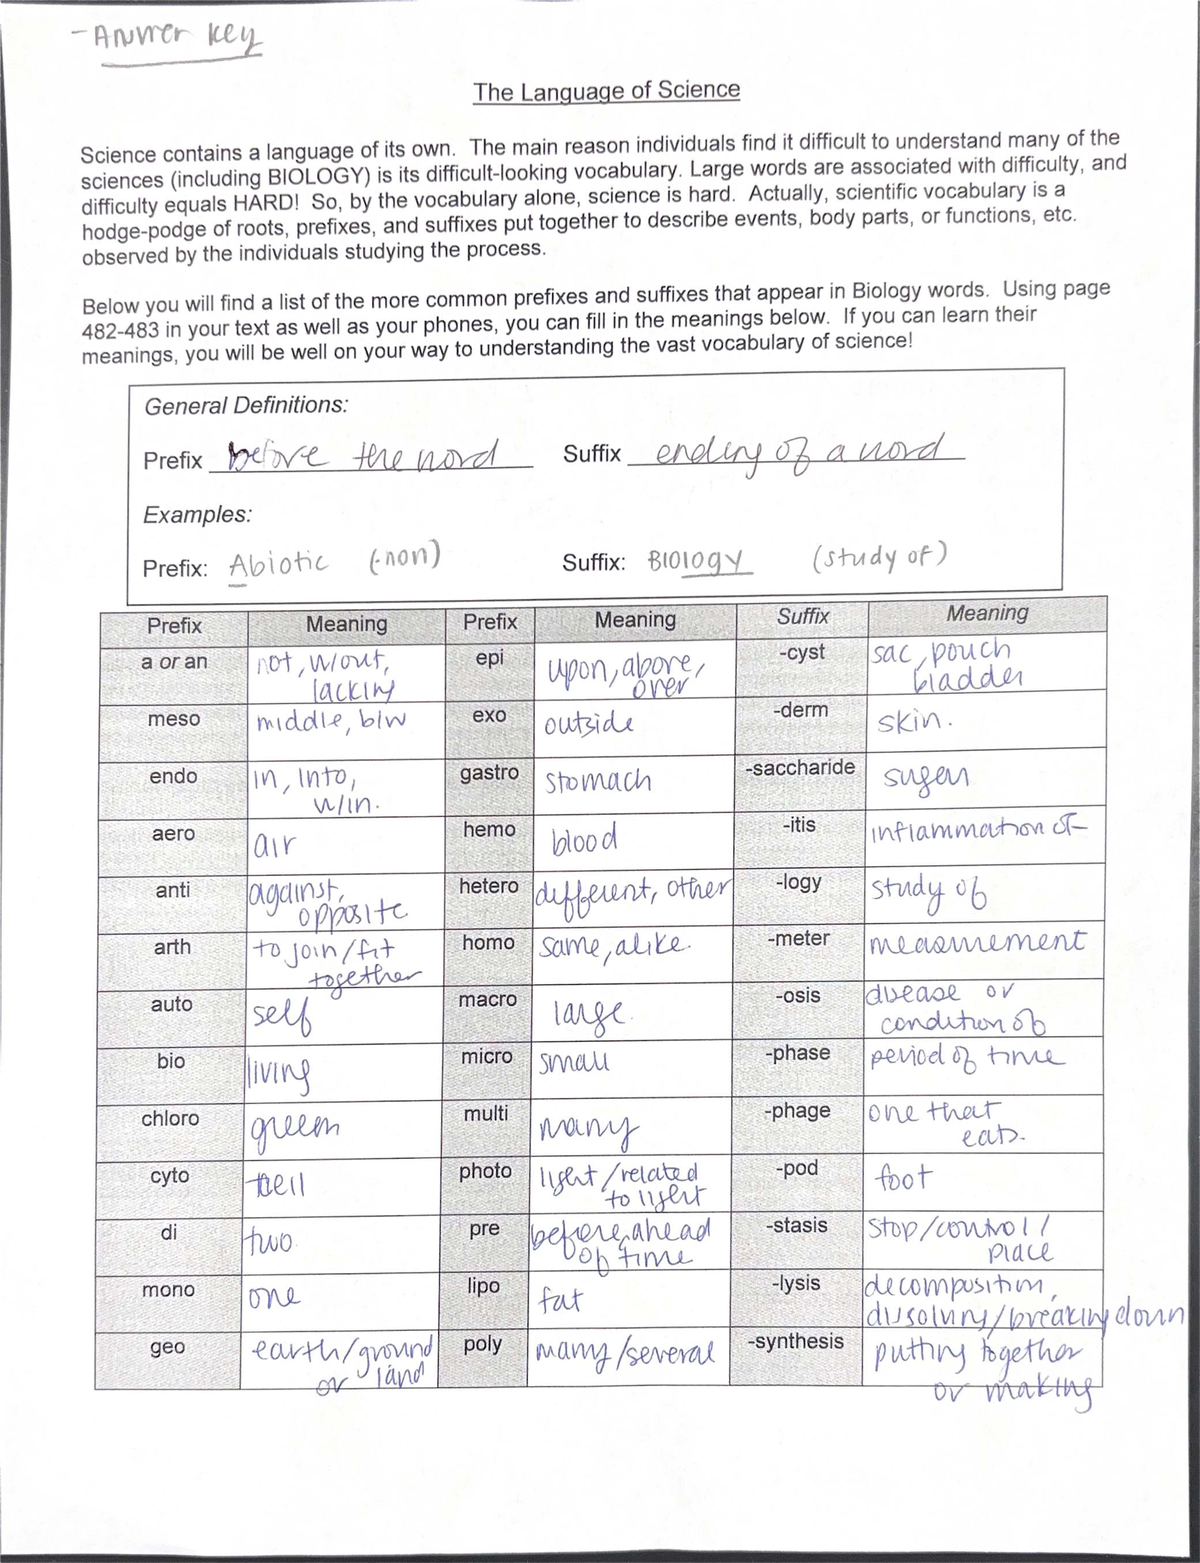 - Answer key
The Language of Science
Science contains a language of its own. The main reason individuals find it difficult to understand many of the
sciences (including BIOLOGY) is its difficult-looking vocabulary. Large words are associated with difficulty, and
difficulty equals HARD! So, by the vocabulary alone, science is hard. Actually, scientific vocabulary is a
hodge-podge of roots, prefixes, and suffixes put together to describe events, body parts, or functions, etc.
observed by the individuals studying the process.
Below you will find a list of the more common prefixes and suffixes that appear in Biology words. Using page
482-483 in your text as well as your phones, you can fill in the meanings below. If you can learn their
meanings, you will be well on your way to understanding the vast vocabulary of science!
General Definitions:
Prefix before the word Suffix ending of a word
Examples:
Prefix: Abiotic (-non) Suffix: Biology (study of)
Prefix Meaning Prefix Meaning Suffix Meaning
a or an not, w/out, lacking epi upon, above, over -cyst sac, pouch bladder
meso middle, b/w exo outside -derm skin.
endo in, into, w/in. gastro stomach -saccharide sugar
aero air hemo blood -itis inflammation of
anti against, opposite hetero different, other -logy study of
arth to join/fit together homo same, alike. -meter measurement
auto self macro large. -osis disease or condition of
bio living micro small -phase period of time
chloro green multi many -phage one that eats.
cyto cell photo light/related to light -pod foot
di two. pre before, ahead of time -stasis stop/control/ place
mono one lipo fat -lysis decomposition, dissolving/breaking down
geo earth/ground or land poly many/several -synthesis putting together or making